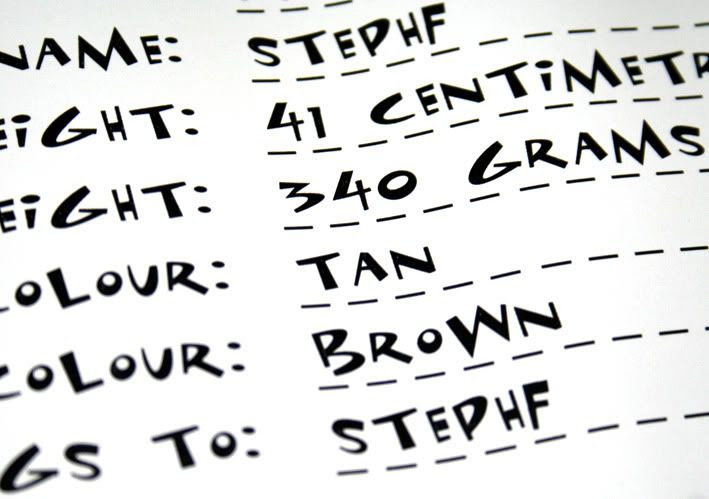 NAME: STEPHF
EiGHT: 41 CENTiMETR
EiGHT: 340 GRAMS
OLOUR: TAN
COLOUR: BROWN
GS TO: STEPHF